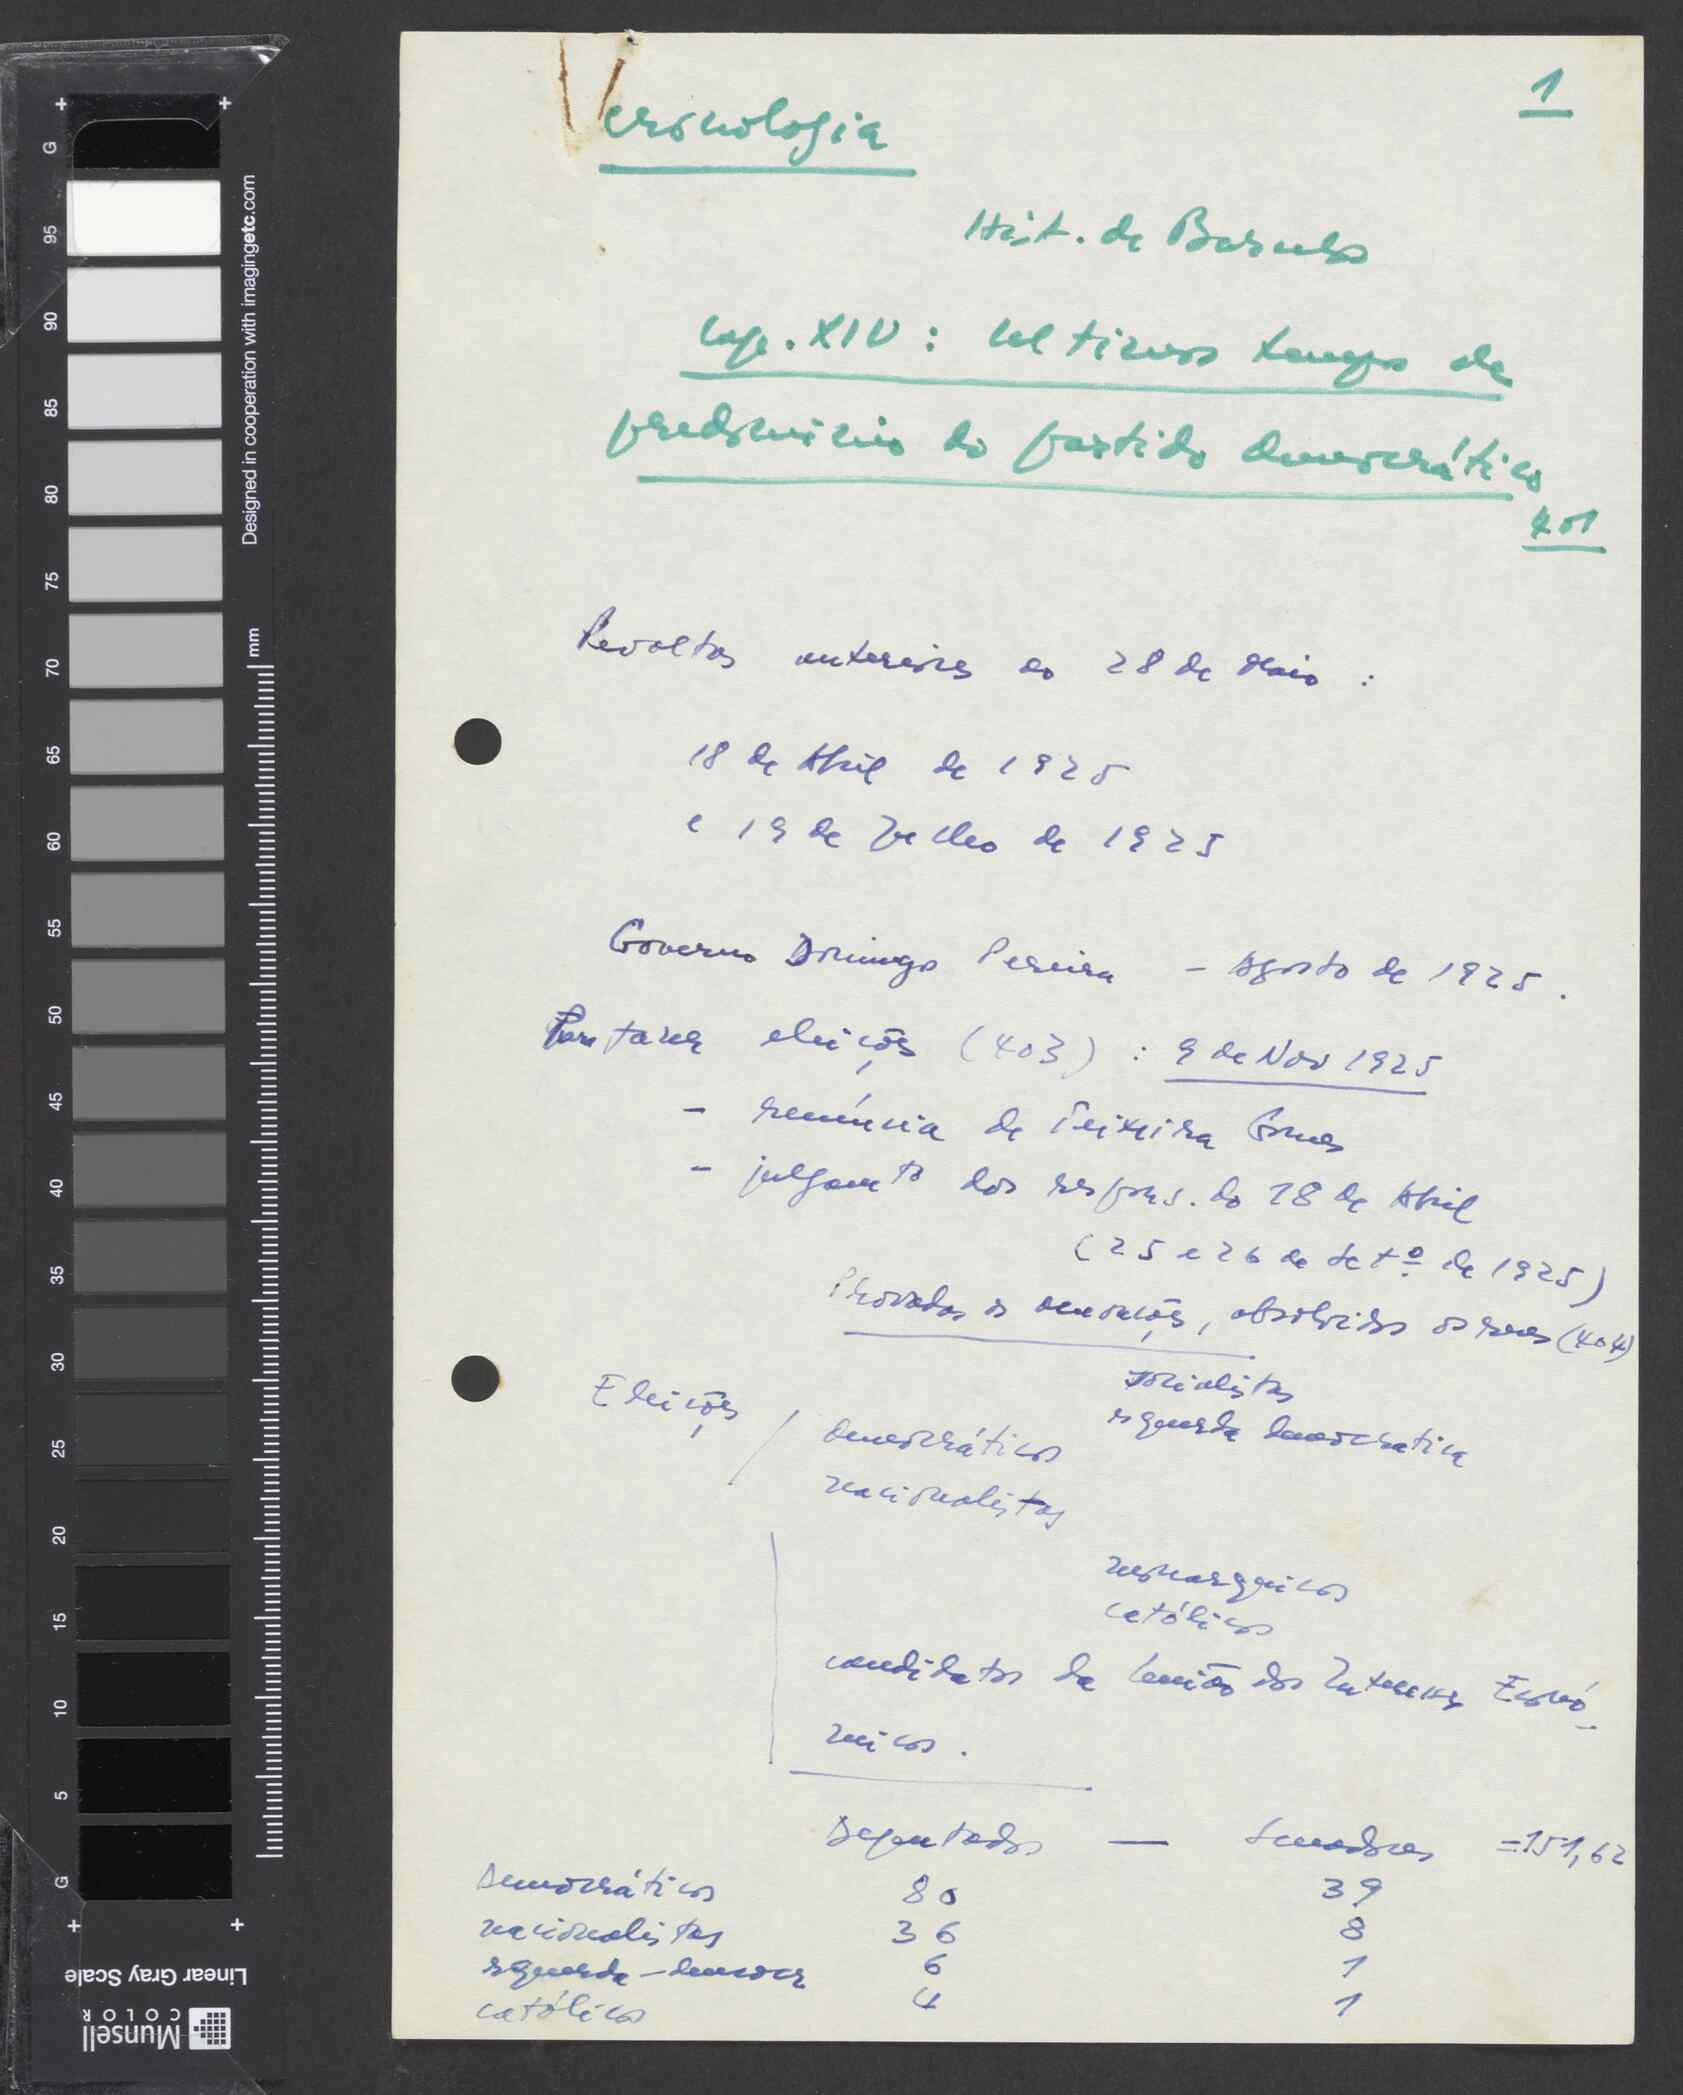 1
cronologia
Hist. de Barcelos
cap. XIV: Ultimos tempos de
predominio do partido democrático
401
Revoltas anteriores ao 28 de Maio :
18 de Abril de 1925
e 19 de Julho de 1925
Governo Domingos Pereira - Agosto de 1925.
Para fazer eleições (403) : 9 de Nov 1925
- renúncia de Teixeira Gomes
- julgamto dos respons. do 18 de Abril
(25 e 26 de Setº de 1925)
Provadas as acusações, absolvidos os reus (404)
Eleições / socialistas
esquerda democratica
democráticos
nacionalistas
monarquicos
católicos
candidatos da União dos Interesses Econó-
micos.
Deputados — Senadores =151,62
Democráticos 80 39
nacionalistas 36 8
esquerda-democr 6 1
católicos 4 1
Designed in cooperation with imagingetc.com
mm
G 95 90 85 80 75 70 65 60 55 50 45 40 35 30 25 20 15 10 5 G
Linear Gray Scale
Munsell
COLOR